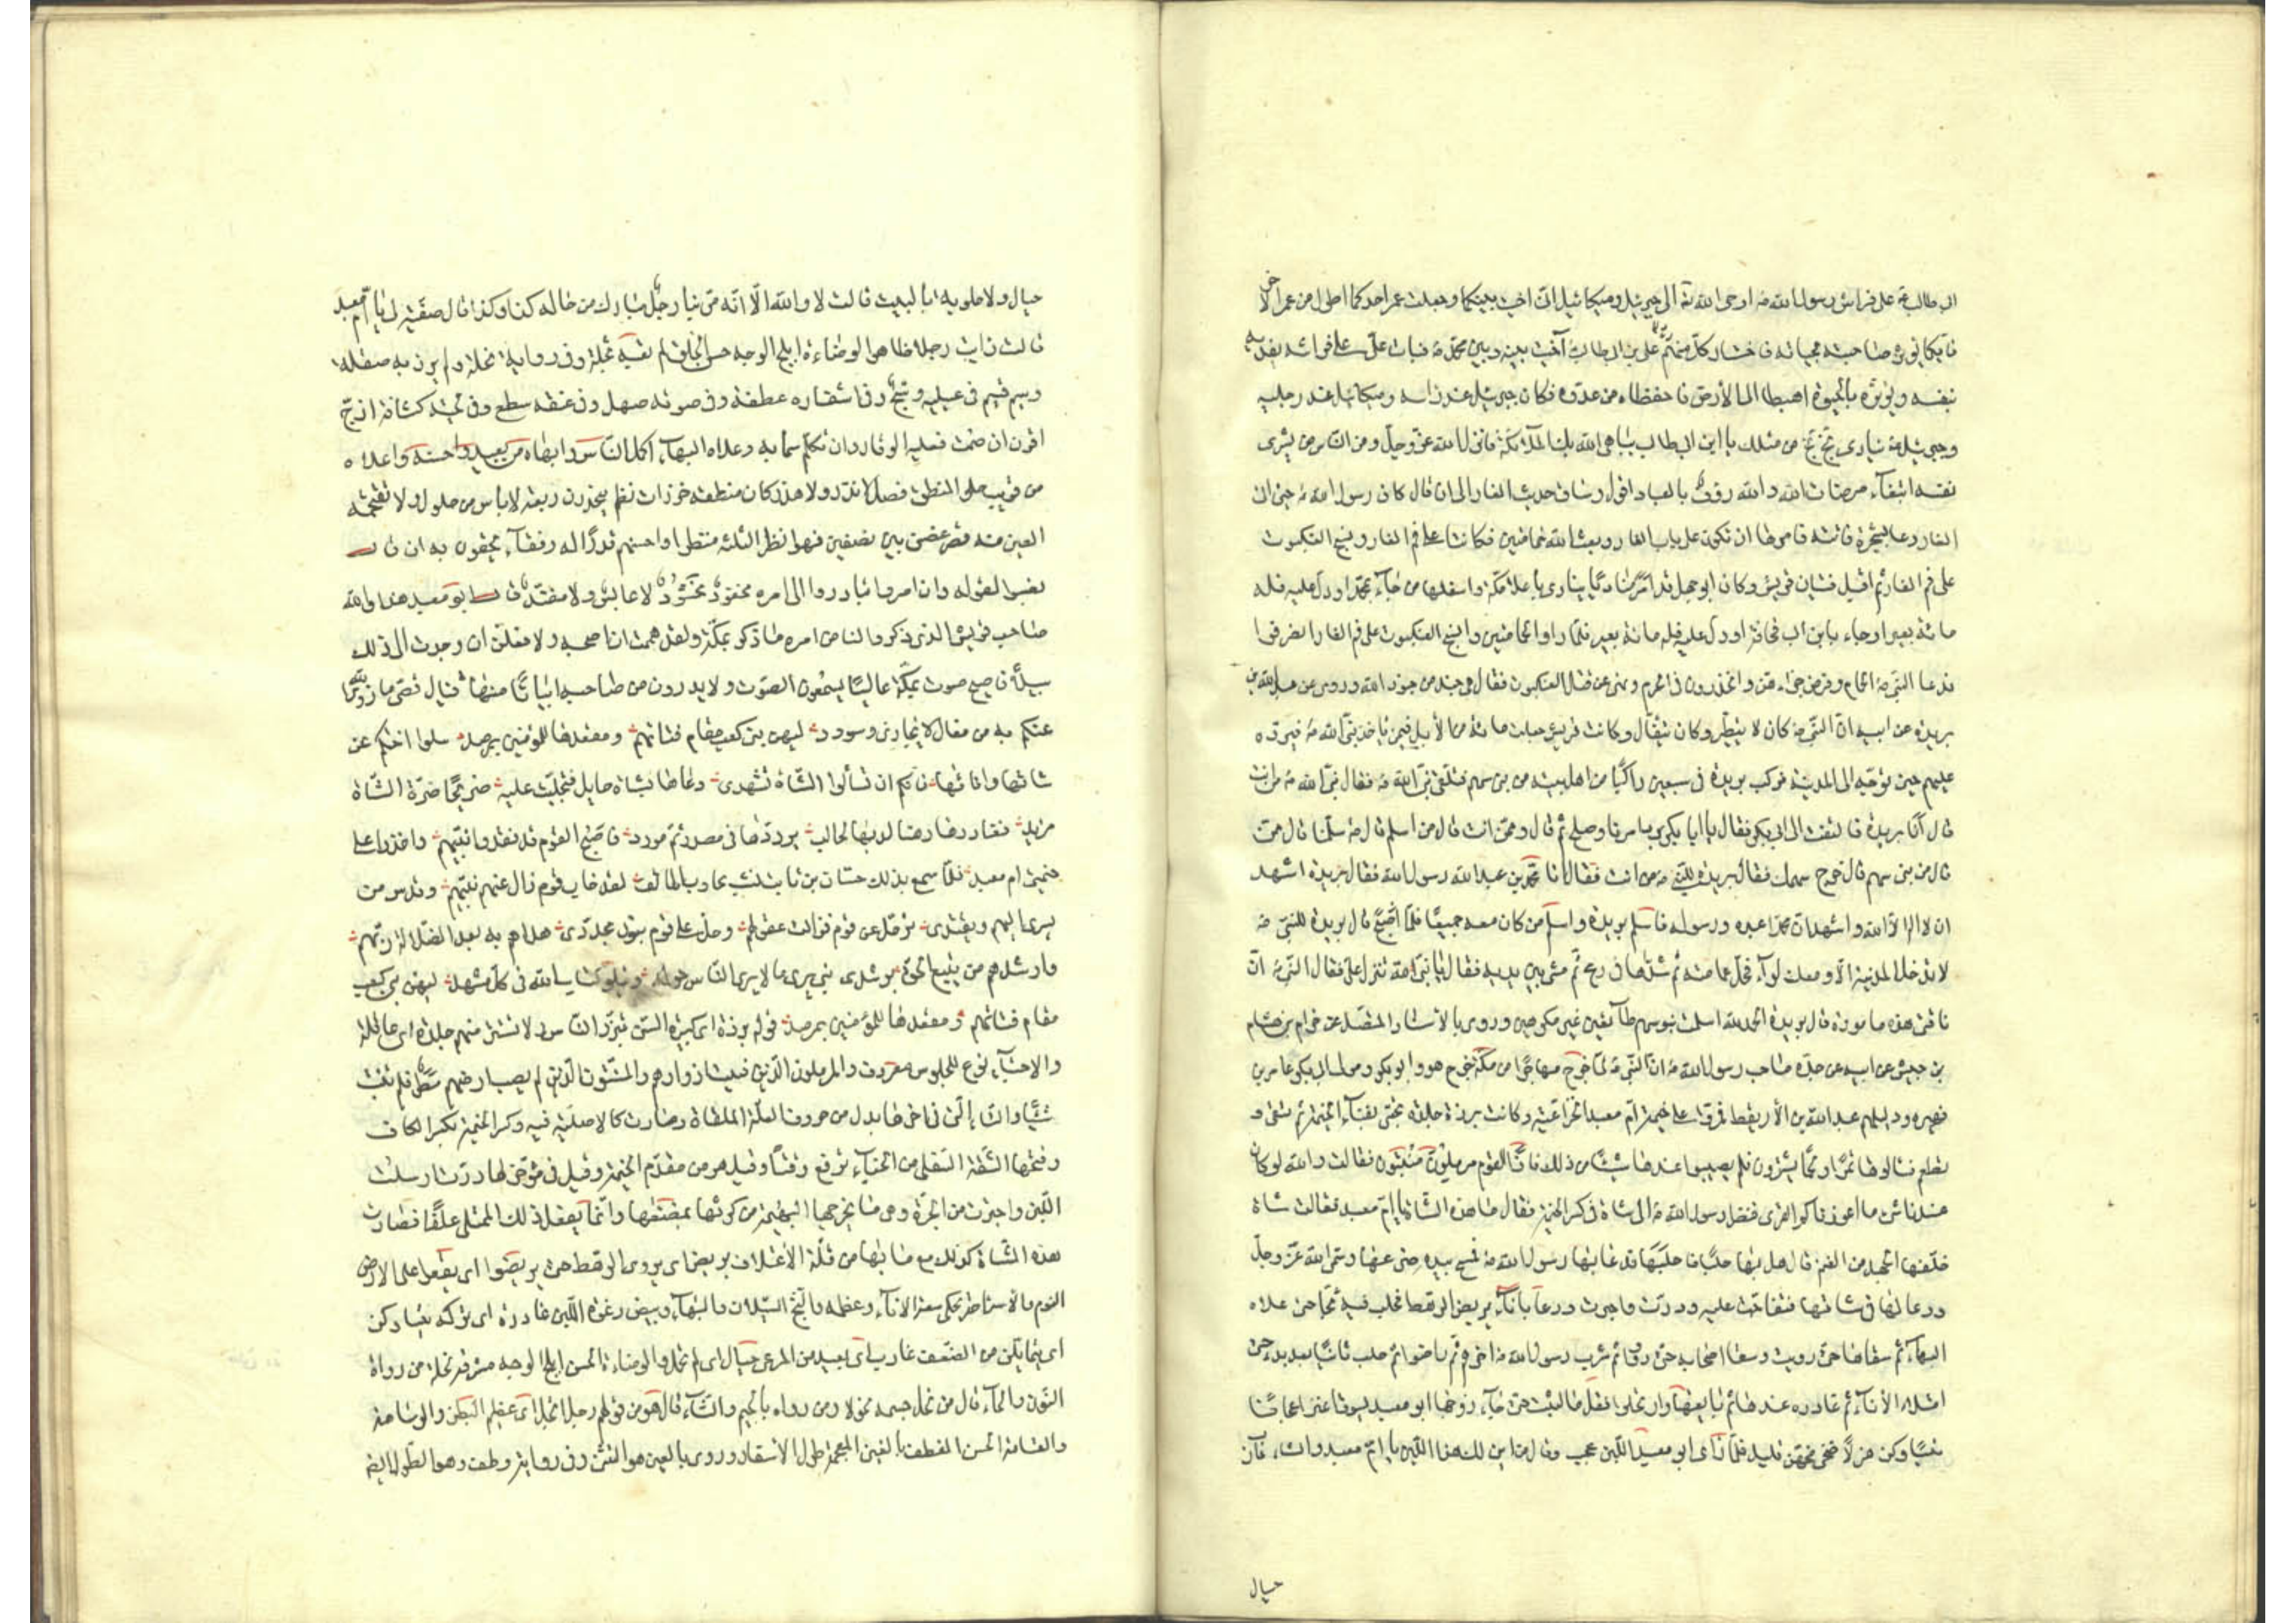 ابى طالب ع على فراش رسول الله ص اوحى الله تع الى جبرئيل وميكائيل انى اخيت بينكما وجعلت عمر احدكما اطول من عمر الاخر
فايكما يؤثر صاحبه بحياته فاختار كل منهما على بن ابى طالب آخيت بينه وبين محمد ص فبات على على فراشه يفديه
بنفسه ويؤثره بالحيوة اهبطا الى الأرض فاحفظاه من عدوه فكان جبرئيل عند راسه وميكائيل عند رجليه
وجبرئيل ع ينادى بخ بخ من مثلك يا ابن ابى طالب يباهى الله بك الملائكة فانزل الله عز وجل ومن الناس من يشرى
نفسه ابتغاء مرضات الله والله رؤف بالعباد اقول وساق حديث الغار الى ان قال كان رسول الله ص حين اتى
الغار دعا بشجرة فاتته فامرها ان تكون على باب الغار وبعث الله حمامتين فكانتا على فم الغار ونسج العنكبوت
على فم الغار ثم اقبل فتيان قريش وكان ابو جهل قد امر مناديا ينادى باعلا مكة واسفلها من جاء بمحمد او دل عليه فله
مائة بعير او جاء بابن ابى قحافة او دل عليه فله مائة بعير فلما راوا الحمامتين ونسج العنكبوت على فم الغار انصرفوا
فدعا النبى ص للحمام وفرض جزاءهن وانحدرن فى الحرم ونهى عن قتل العنكبوت فقال هى جند من جنود الله وروى عن عبد الله بن
بريدة عن ابيه ان النبى ص كان لا يتطير وكان يتفأل وكانت قريش جعلت مائة من الأبل فيمن ياخذ نبى الله ص فيرده
عليهم حين توجه الى المدينة فركب بريدة فى سبعين راكبا من اهل بيته من بنى سهم فتلقى نبى الله ص فقال نبى الله ص من انت
قال انا بريدة فالتفت الى ابى بكر فقال يا ابا بكر برد امرنا وصلح ثم قال وممن انت قال من اسلم قال ص سلمنا قال ممن
قال من بنى سهم قال خرج سهمك فقال بريدة للنبى ص من انت فقال انا محمد بن عبد الله رسول الله فقال بريدة اشهد
ان لا اله الا الله واشهد ان محمدا عبده ورسوله فاسلم بريدة واسلم من كان معه جميعا فلما اصبح قال بريدة للنبى ص
لا تدخل المدينة الا ومعك لواء فحل عمامته ثم شدها فى رمح ثم مشى بين يديه فقال يا نبى الله تنزل على فقال النبى ص ان
ناقتى هذه مامورة قال بريدة الحمد لله اسلمت بنو سهم طائعين غير مكرهين وروى بالأسناد المتصل عن حزام بن هشام
بن حبيش عن ابيه عن جده صاحب رسول الله ص ان النبى ص لما خرج مهاجرا من مكة خرج هو وابو بكر ومولى ابى بكر عامر بن
فهيره ودليلهم عبد الله بن الأريقط فمروا على خيمة ام معبد الخزاعية وكانت برزة جلدة تحتبى بفناء الخيمة ثم تسقى و
تطعم فسالوها تمرا ولحما يشترون فلم يصيبوا عندها شيئا من ذلك فاذا القوم مرملون مسنتون فقالت والله لو كان
عندنا شئ ما اعوزناكم القرى فنظر رسول الله ص الى شاة فى كسر الخيمة فقال ما هذه الشاة يا ام معبد فقالت شاة
خلفها الجهد من الغنم قال هل بها حلبا فاحلبها فدعا بها رسول الله ص فمسح بيده ضرعها وسمى الله عز وجل
ودعا لها فى شاتها فتفاجت عليه ودرت واجترت ودعا باناء يربض الرهط فحلب فيه ثجا حتى علاه
البهاء ثم سقاها حتى رويت وسقا اصحابه حتى رووا ثم شرب رسول الله ص اخرهم ثم راضوا ثم حلب ثانيا بعد بدء حتى
امتلاء الأناء ثم غادره عندها ثم بايعها وارتحلوا فقل ما لبث حتى جاء زوجها ابو معبد يسوق اعنزا عجافا
يتساوكن هزلا ضحى مخهن قليل فلما راى ابو معبد اللبن عجب وقال من اين لك هذا اللبن يا ام معبد والشاء عازب
حيال
حيال ولا حلوبة بالبيت قالت لا والله الا انه مر بنا رجل مبارك من حاله كذا وكذا قال صفيه لى يا ام معبد
قالت رايت رجلا ظاهر الوضاءة ابلج الوجه حسن الخلق لم تعبه ثجلة وفى رواية نحلة ولم يزر به صقلة
وسيم قسيم فى عينيه دعج وفى اشفاره عطف وفى صوته صهل وفى عنقه سطع وفى لحيته كثافة ازج
اقرن ان صمت فعليه الوقار وان تكلم سما به وعلاه البهاء اكمل الناس وابهاه من بعيد واحسنه واعلاه
من قريب حلو المنطق فصل لا نذر ولا هذر كان منطقه خرزات نظم يتحدرن ربعة لا ياس من طول ولا تقتحمه
العين منه قصر غصن بين غصنين فهو انظر الثلثة منظرا واحسنهم قدرا له رفقاء يحفون به ان قال
نصتوا لقوله وان امر تبادروا الى امره محفود محشود لا عابس ولا مفند قال ابو معبد هذا والله
صاحب قريش الذى ذكر والنا من امره ما ذكر بمكة ولقد هممت ان اصحبه ولا فعلن ان وجدت الى ذلك
سبيلا فاصبح صوت بمكة عاليا يسمعون الصوت ولا يدرون من صاحبه ابياتا منها فيال قصى ما زوى الله
عنكم به من فعال لا يجارى وسودد ليهن بنى كعب مقام فتاتهم ومقعدها للمؤمنين بمرصد سلوا اختكم عن
شاتها وانائها فانكم ان تسألوا الشاة تشهدى دعاها بشاة حايل فتحلبت عليه صريحا ضرة الشاة
مزبد فغادرها رهنا لديها لحالب يرددها فى مصدر ثم مورد فاصبح القوم قد فقدوا نبيهم واخذوا على
خيمتى ام معبد فلما سمع بذلك حسان بن ثابت نشب يجاوب الهاتف لقد خاب قوم زال عنهم نبيهم وقدس من
يسرى اليهم ويغتدى ترحل عن قوم فزالت عقولهم وحل على قوم بنور مجددى هداهم به بعد الضلالة ربهم
وارشدهم من يتبع الحق يرشدى نبى يرى ما لا يرى الناس حوله ويتلو كتاب الله فى كل مشهد ليهن بنى كعب
مقام فتاتهم ومقعدها للمؤمنين بمرصد قوله برزة اى كبيرة السن تبرز للناس ولا تستتر منهم جلدة اى عاقلة
والاحتباء نوع للجلوس معروف والمرملون الذين فنيت ازوادهم والمسنتون الذين لم يصب ارضهم مطر فلم تنبت
شيئا والتاء التى فى اخرها بدل من حروف العلة الملقاة وصارت كالاصلية فيه وكسر الخيمة بكسر الكاف
وفتحها الشقة السفلى من الخباء ترفع وقتا وقيل هو من مقدم الخيمة وقيل فى مؤخرها درت ارسلت
اللبن واجترت من الجرة وهى ما تخرجها البهيمة من كرشها تمضغها وانما يفعل ذلك الممتلى علفا فصارت
هذه الشاة كذلك مع ما بها من قلة الأعتلاف يربض اى يروى الرهط حتى يربضوا اى يقعوا على الارض
للنوم والأستراحة يحكى سعة الأناء وعظمه والثج السيلان والبهاء وبيض رغوة اللبن غادره اى تركه يتساوكن
اى يتمايلن من الضعف عازب اى بعيد من المرعى حيال اى لم تحمل والوضاءة الحسن ابلج الوجه مشرقه نحلة من رواه
بالنون والحاء قال من نحل جسمه نحولا ومن رواه بالجيم والثاء قال هو من قولهم رجل اثجل اى عظيم البطن والوسامة
والقسامة الحسن الغطف بالغين المعجمة طول الاشفار وروى بالعين هو التثنى وفى رواية وطف وهو الطول ايضا